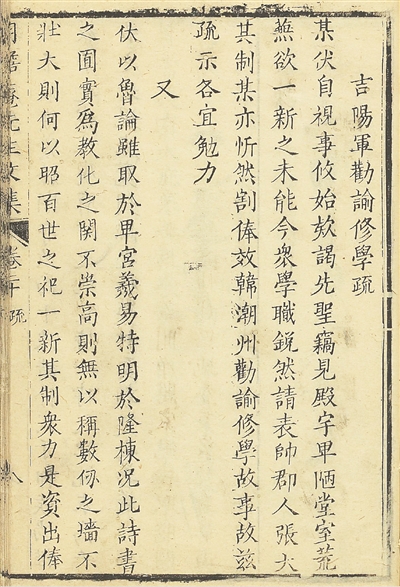 吉陽軍勸諭修學疏
某伏自視事攸始欵謁先聖竊見殿宇卑陋堂室荒
蕪欲一新之未能今衆學職銳然請表帥郡人張大
其制某亦忻然割俸效韓潮州勸諭修學故事故兹
疏示各宜勉力
又
伏以魯論雖取於卑宮羲易特明於隆棟况此詩書
之囿實爲教化之関不崇高則無以稱數仭之墻不
壯大則何以昭百世之祀一新其制衆力是資出俸
澹庵先生文集
卷 疏
八